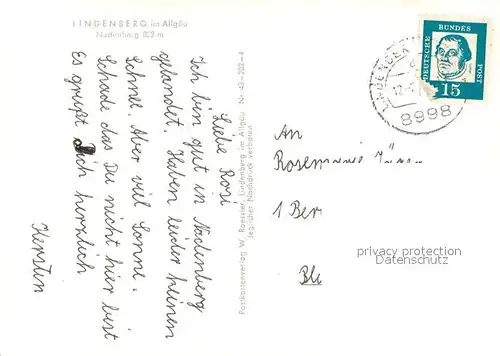 LINDENBERG im Allgäu
Nadenberg 822 m
Liebe Rosi
Ich bin gut in Nadenberg
gelandet. Haben leider keinen
Schnee. Aber viel Sonne.
Schade das Du nicht hier bist
Es grüßt Dich herzlich
Kerstin
Postkartenverlag W. Roessler, Lindenberg im Allgäu Nr. 43-202-4
Jeglicher Nachdruck verboten
DEUTSCHE BUNDES POST
15
8998
An
Rosemarie
1 Ber
privacy protection
Datenschutz